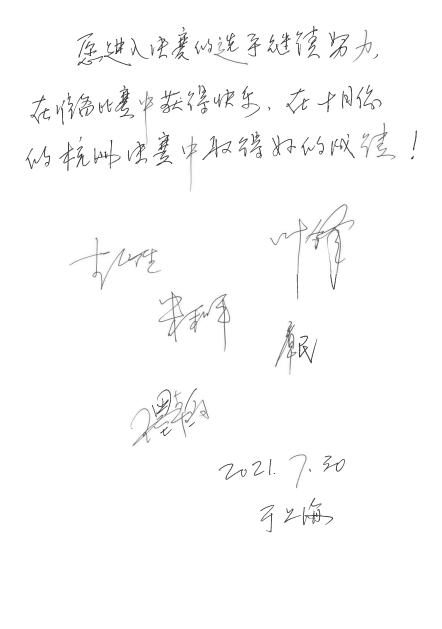 愿进入决赛的选手继续努力，
在准备比赛中获得快乐，在十月份
的杭州决赛中取得好的成绩！
叶锋
朱和平
2021.7.30
于上海